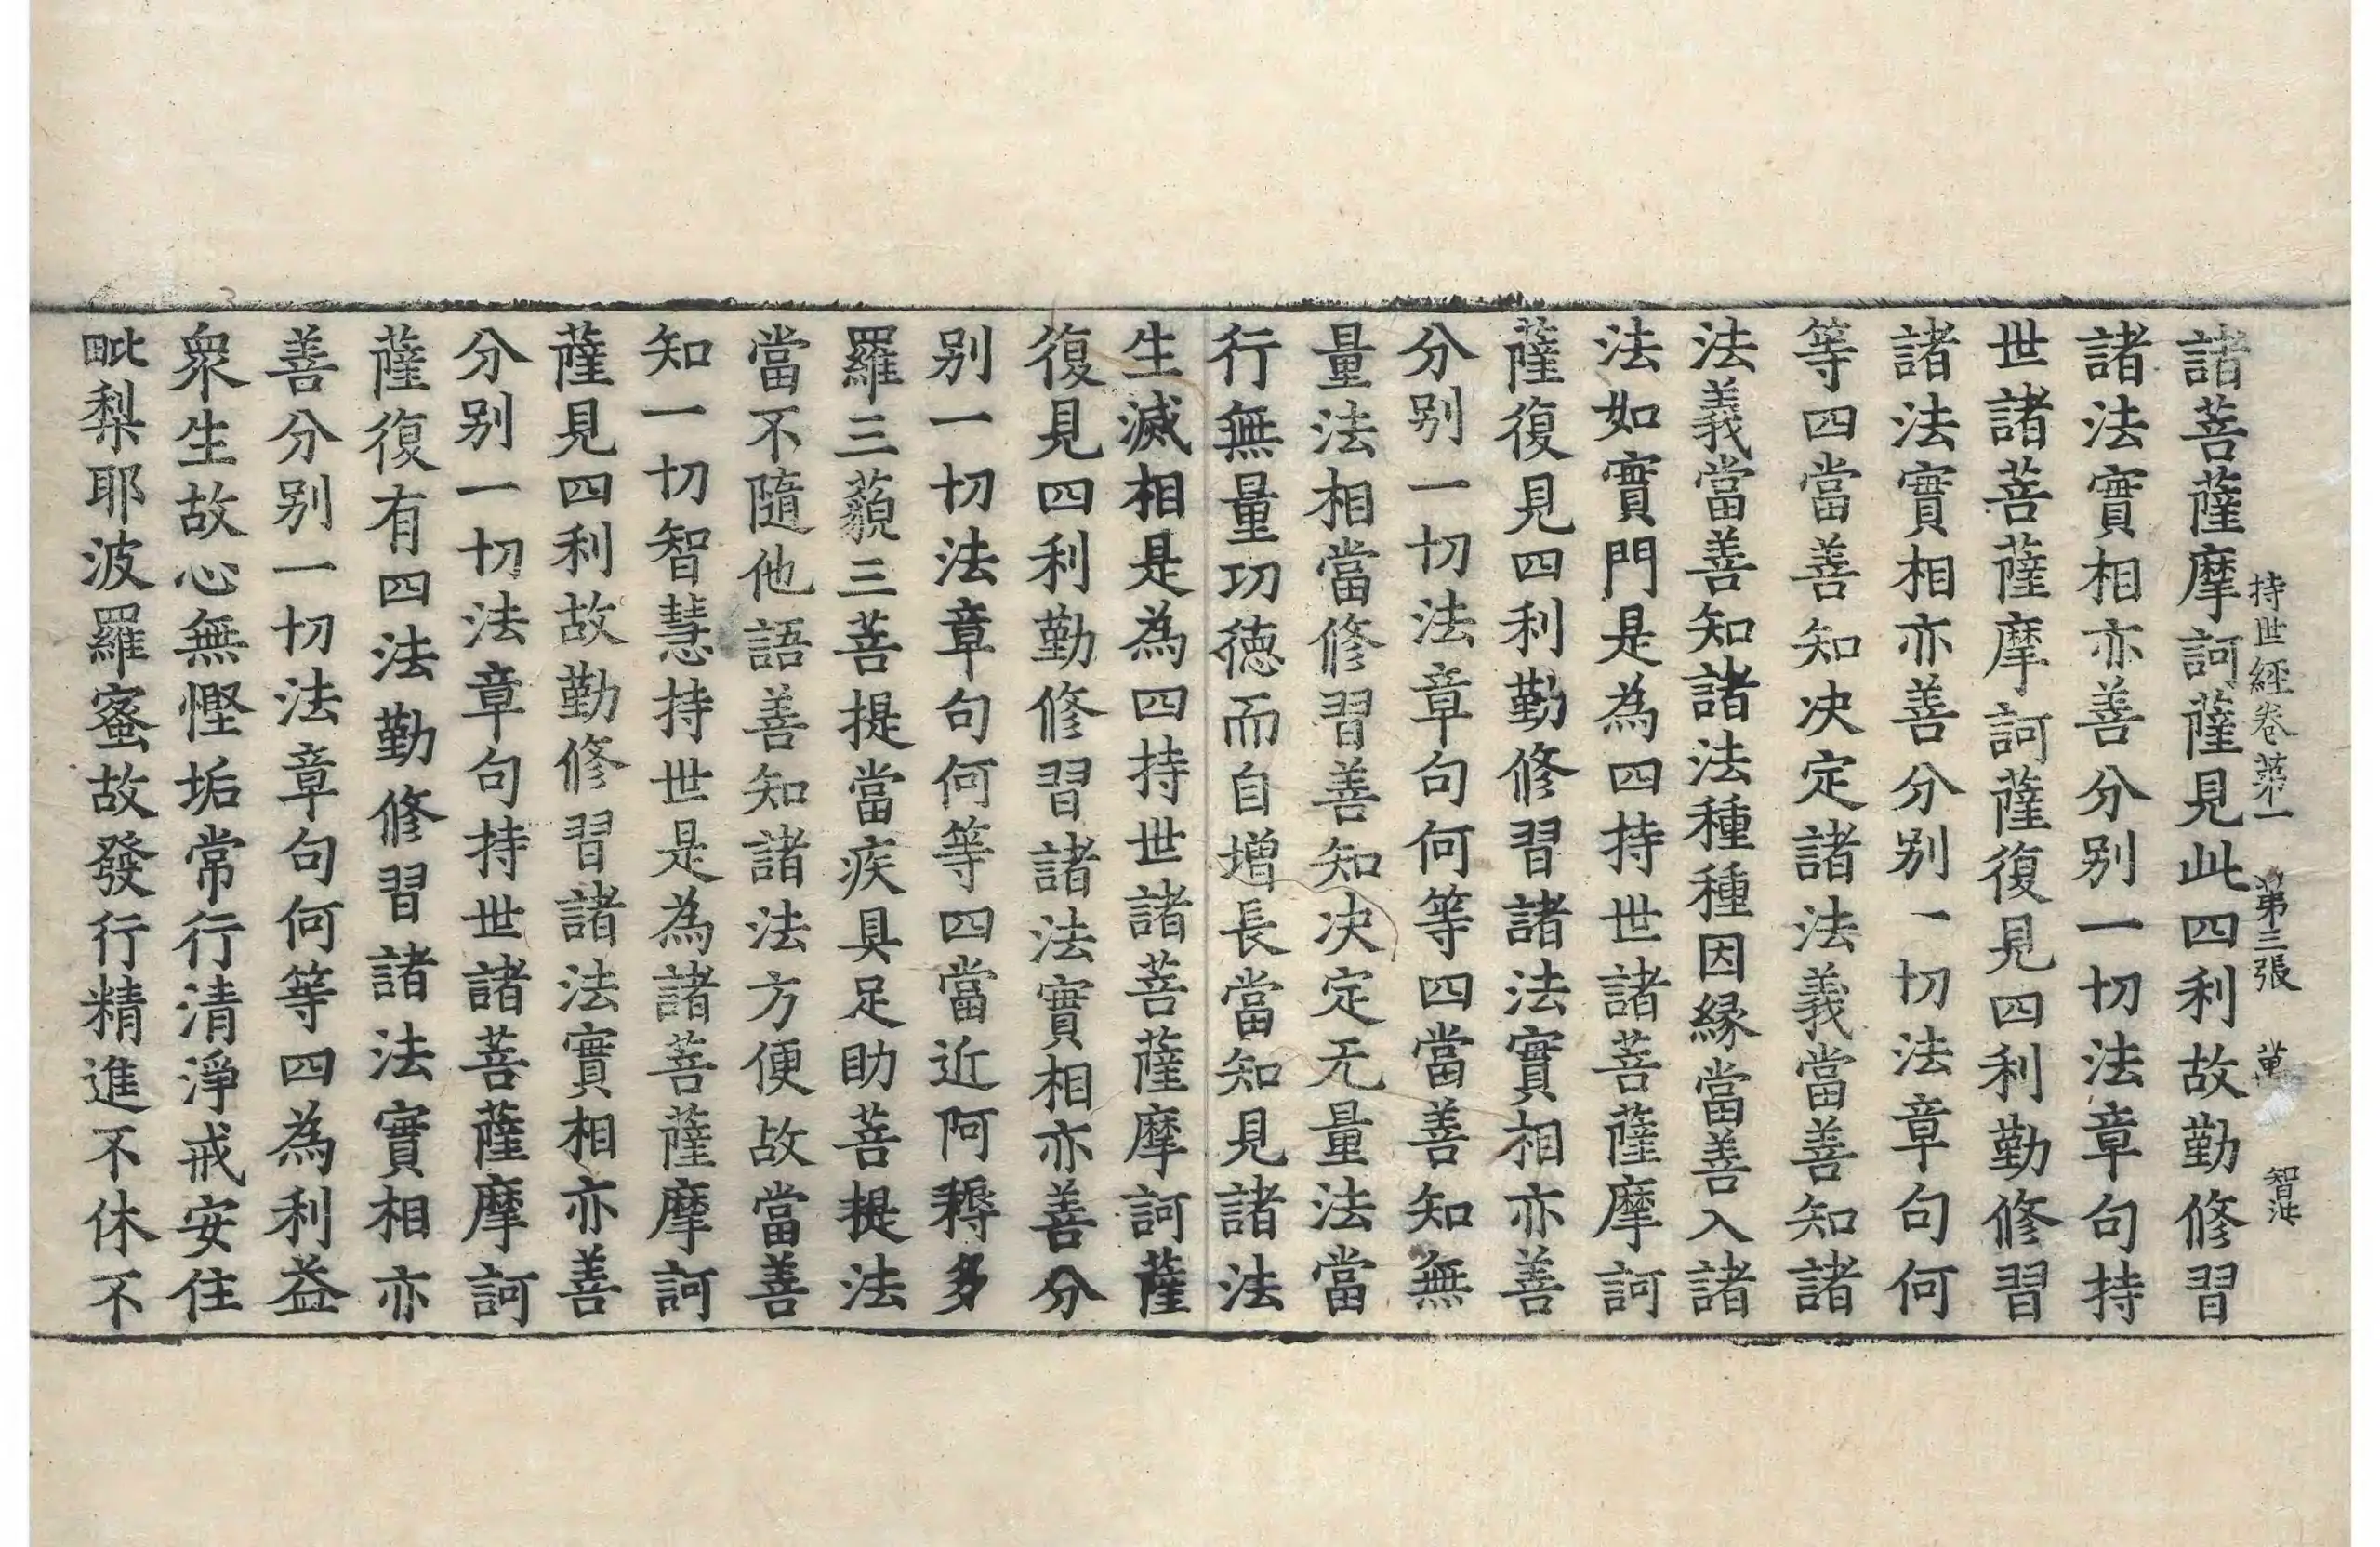 持世經卷第一 第三張 智洪
諸菩薩摩訶薩見此四利故勤修習
諸法實相亦善分别一切法章句持
世諸菩薩摩訶薩復見四利勤修習
諸法實相亦善分别一切法章句何
等四當善知决定諸法義當善知諸
法義當善知諸法種種因縁當善入諸
法如實門是為四持世諸菩薩摩訶
薩復見四利勤修習諸法實相亦善
分别一切法章句何等四當善知無
量法相當修習善知决定无量法當
行無量功德而自增長當知見諸法
生滅相是為四持世諸菩薩摩訶薩
復見四利勤修習諸法實相亦善分
别一切法章句何等四當近阿耨多
羅三藐三菩提當疾具足助菩提法
當不隨他語善知諸法方便故當善
知一切智慧持世是為諸菩薩摩訶
薩見四利故勤修習諸法實相亦善
分别一切法章句持世諸菩薩摩訶
薩復有四法勤修習諸法實相亦
善分别一切法章句何等四為利益
衆生故心無慳垢常行清淨戒安住
毗梨耶波羅蜜故發行精進不休不